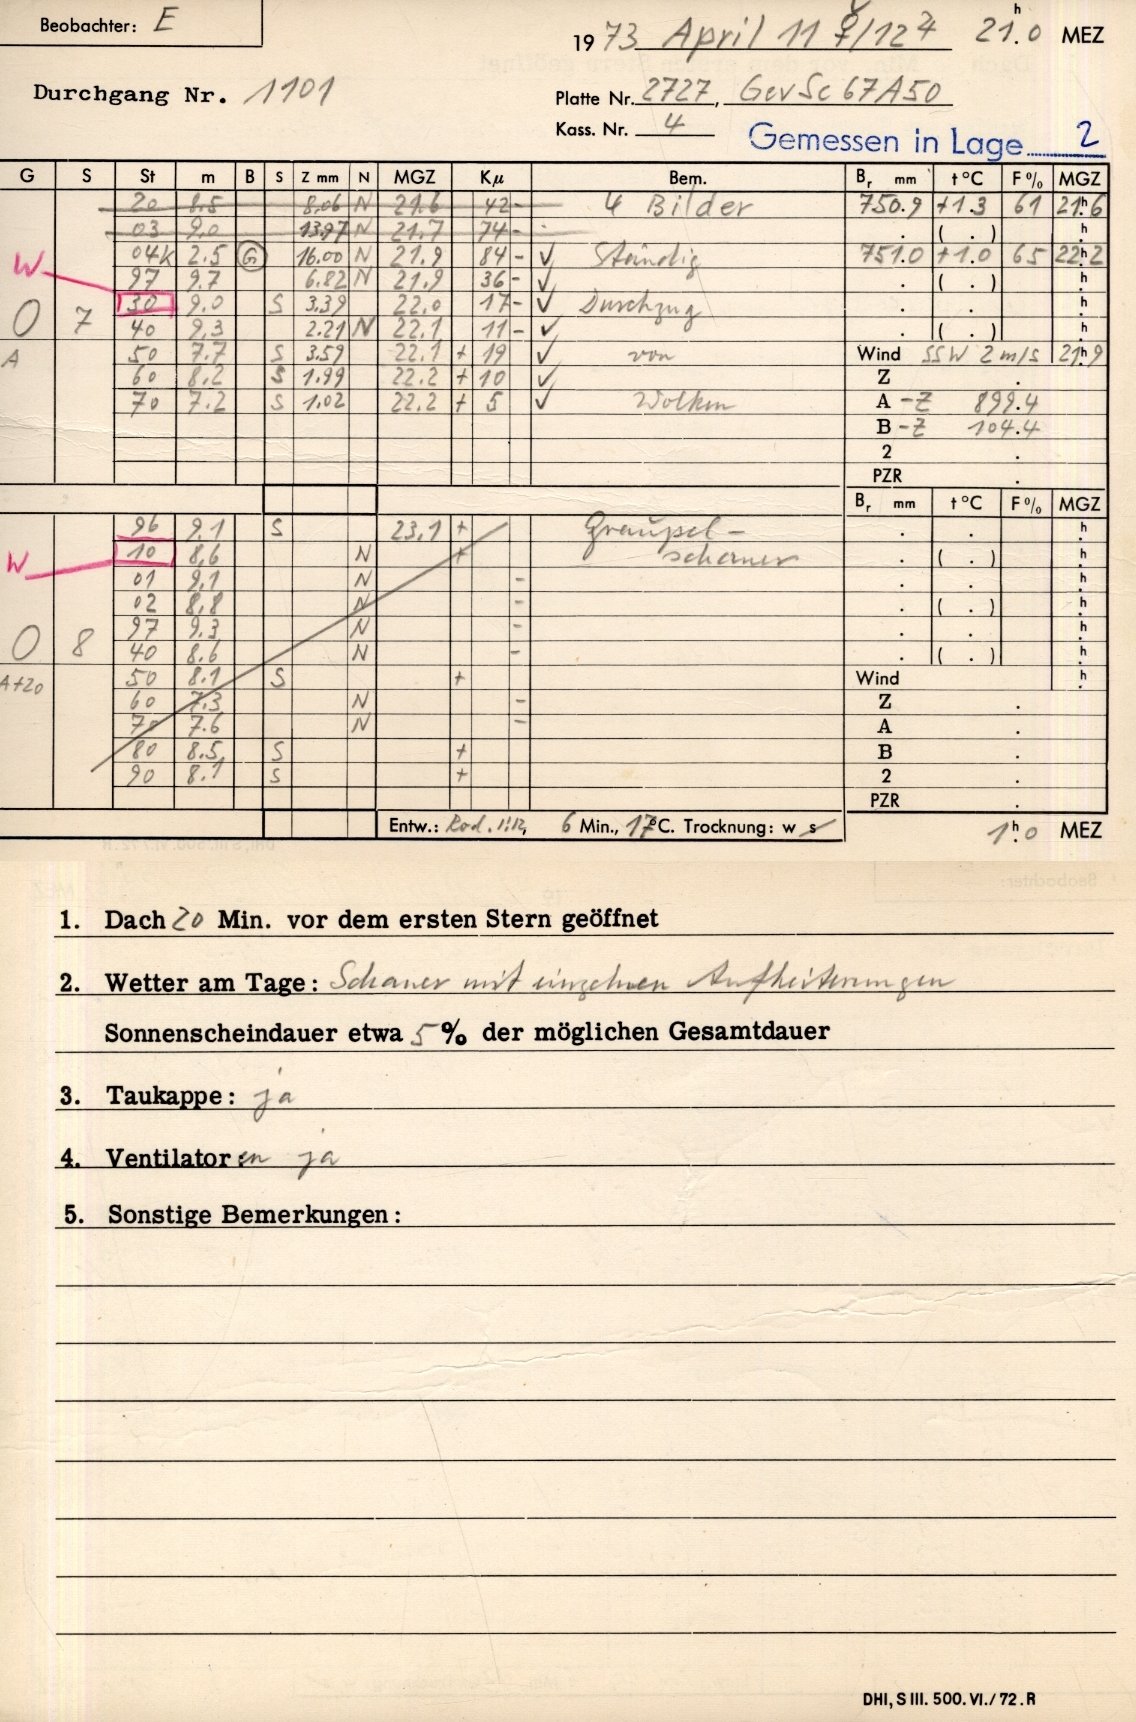 Beobachter: E
1973 April 11 ☿/12 ♃ 21h.0 MEZ
Durchgang Nr. 1101
Platte Nr. 2727, GevSc67A50
Kass. Nr. 4
Gemessen in Lage 2
G S St m B S Z mm N MGZ Kµ Bem. Br mm t°C F% MGZ
20 8.5 8.06 N 21.6 42 - 4 Bilder 750.9 +1.3 61 21h6
03 9.0 13.97 N 21.7 74 - . ( . ) h
W 04K 2.5 G 16.00 N 21.9 84 - ✓ Ständig 751.0 +1.0 65 22h2
97 9.7 6.82 N 21.9 36 - ✓ . ( . ) h
30 9.0 S 3.39 22.0 17 - ✓ Durchzug . . h
0 7 40 9.3 2.21 N 22.1 11 - ✓ . ( . ) h
A 50 7.7 S 3.59 22.1 + 19 ✓ von Wind SSW 2 m/s 21h9
60 8.2 S 1.99 22.2 + 10 ✓ Z .
70 7.2 S 1.02 22.2 + 5 ✓ Wolken A -Z 899.4
B -Z 104.4
2 .
PZR .
Br mm t°C F% MGZ
96 9.1 S 23.1 + Graupel- . . h
W 10 8.6 N + schauer . ( . ) h
01 9.1 N - . . h
02 8.8 N - . ( . ) h
97 9.3 N - . . h
0 8 40 8.6 N - . ( . ) h
A+20 50 8.1 S + Wind h
60 7.3 N - Z .
70 7.6 N - A .
80 8.5 S + B .
90 8.1 S + 2 .
PZR .
Entw.: Rod. 1:12, 6 Min., 17°C. Trocknung: w s
1h.0 MEZ
1. Dach 20 Min. vor dem ersten Stern geöffnet
2. Wetter am Tage: Schauer mit einzelnen Aufheiterungen
Sonnenscheindauer etwa 5% der möglichen Gesamtdauer
3. Taukappe: ja
4. Ventilator:en ja
5. Sonstige Bemerkungen:
DHI, S III. 500. VI./72. R